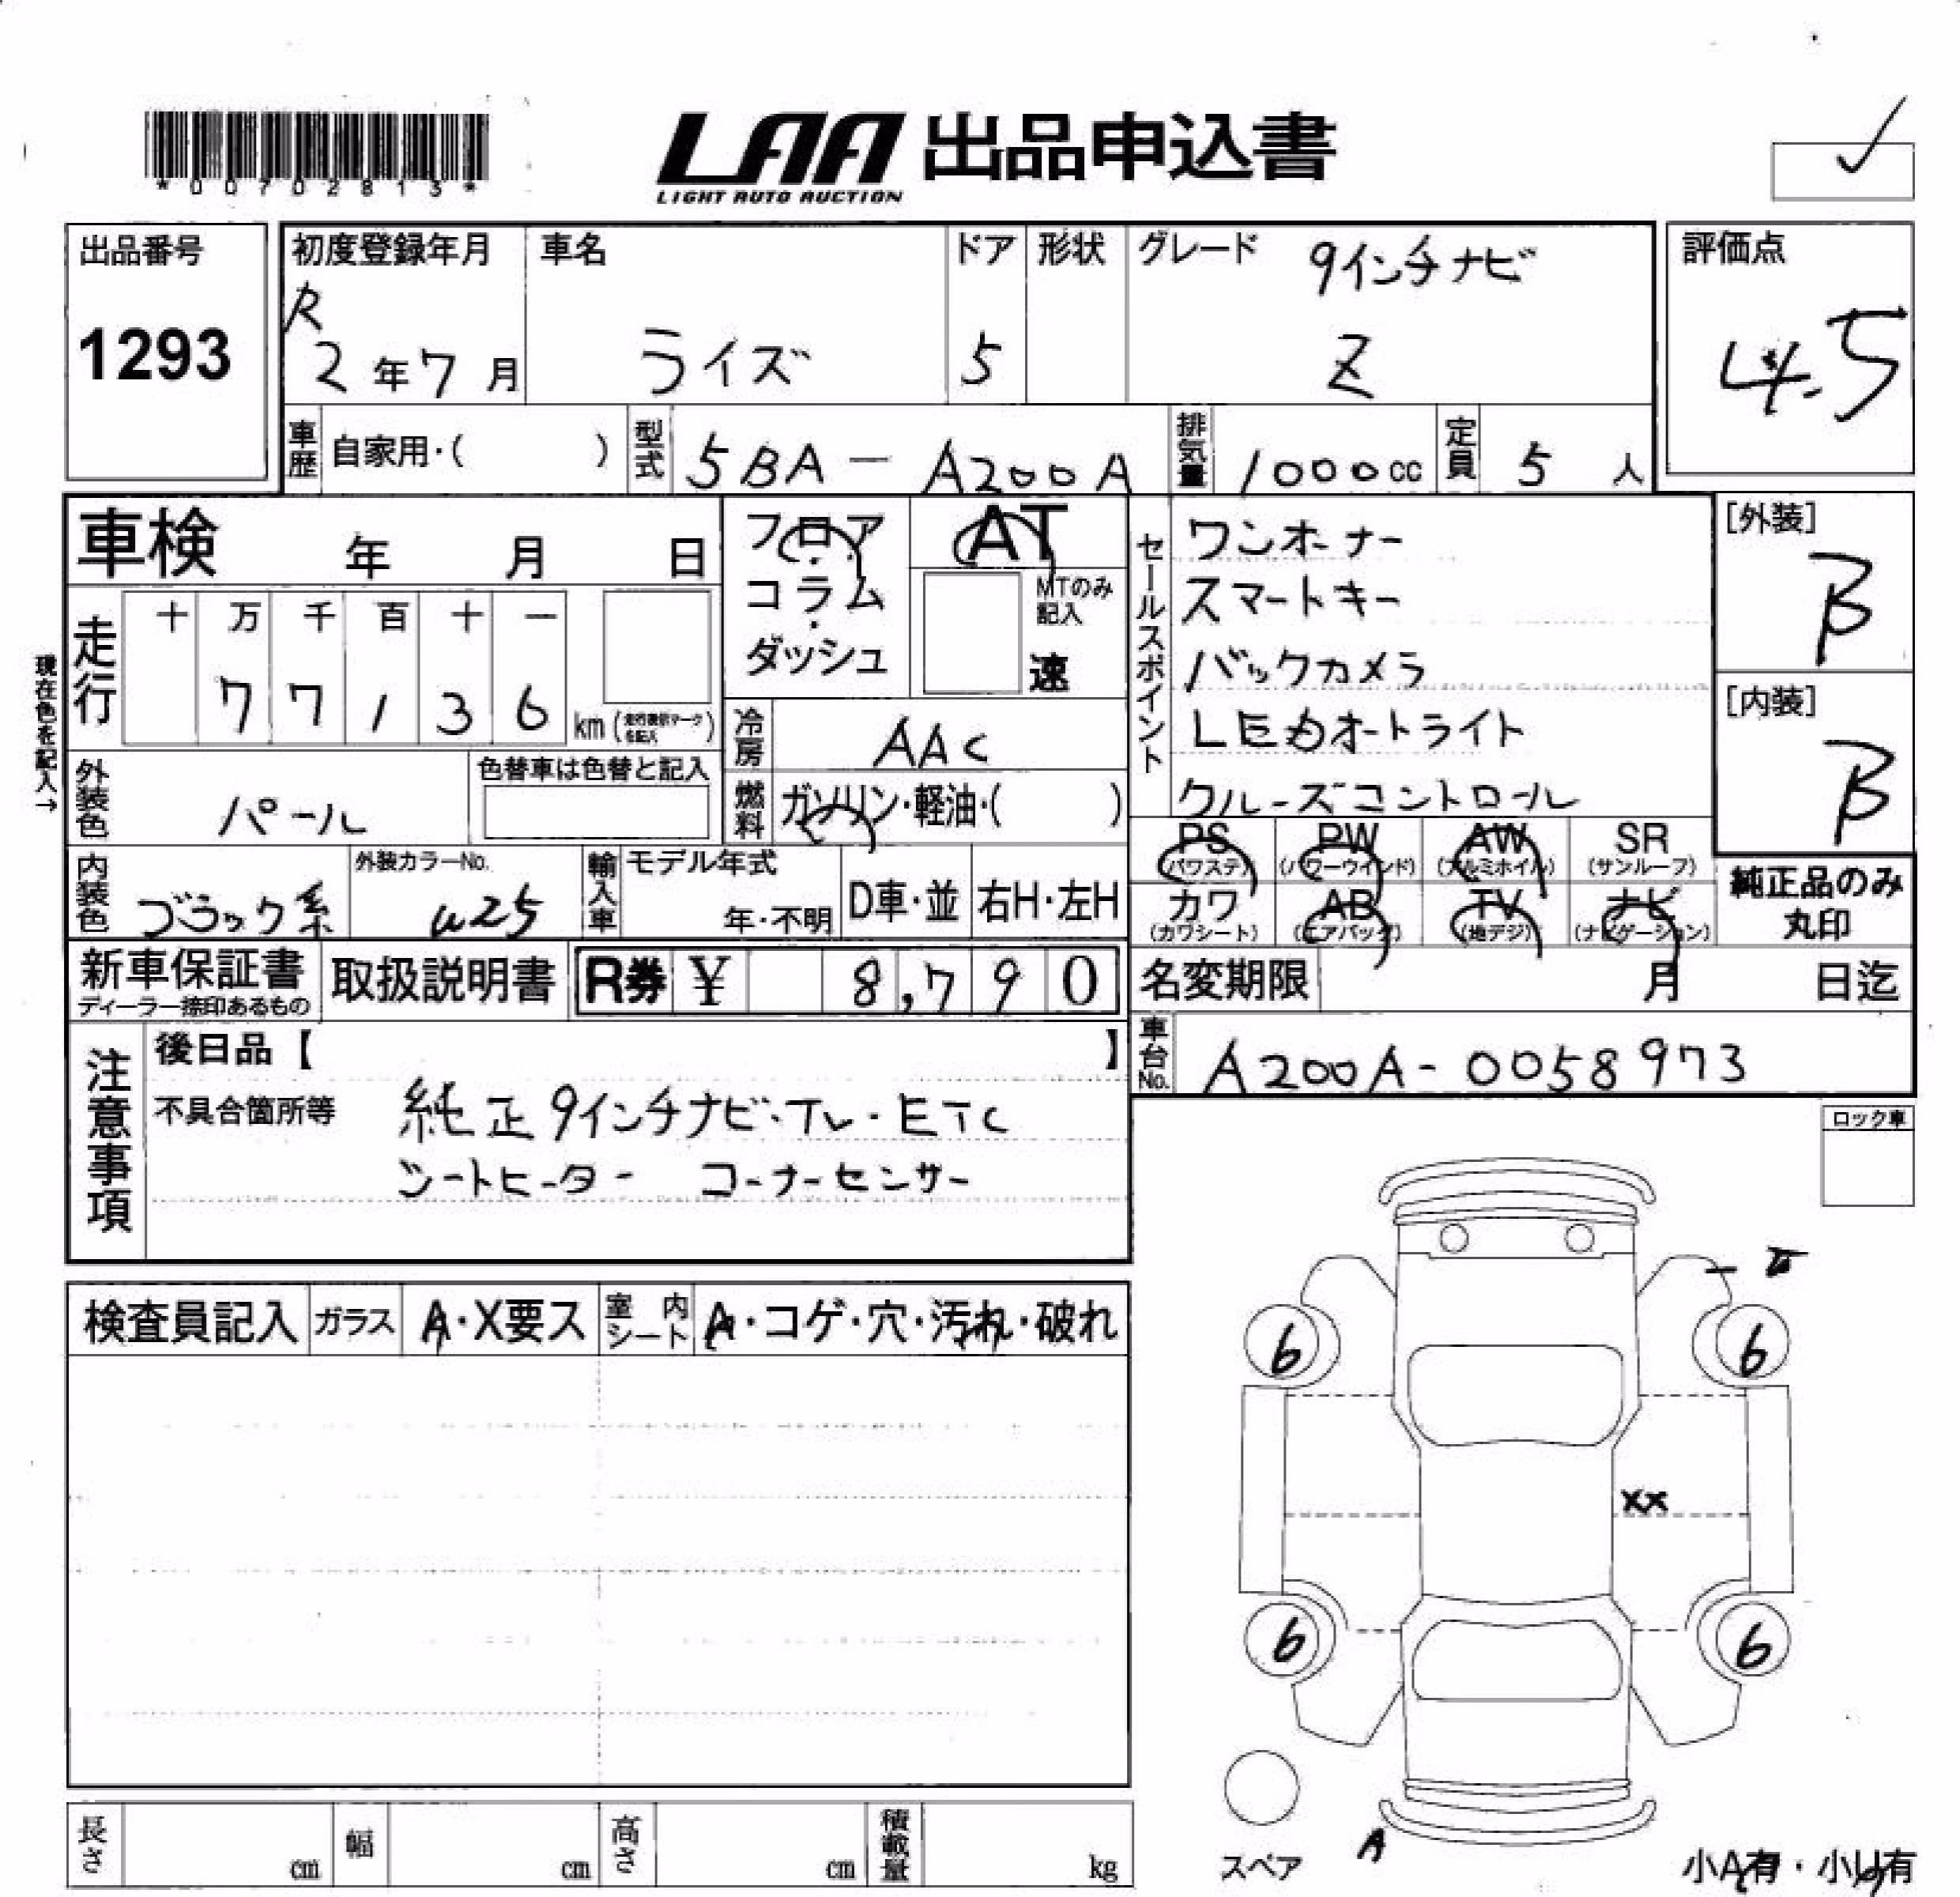 *00702813*
LAA 出品申込書
LIGHT AUTO AUCTION
出品番号
1293
初度登録年月
R
2年7月
車名
ライズ
ドア
5
形状
グレード
9インチナビ
Z
評価点
4.5
車歴 自家用・( )
型式 5BA-A200A
排気量 1000cc
定員 5人
車検 年 月 日
フロア・コラム・ダッシュ
AT
MTのみ記入
速
セールスポイント
ワンオーナー
スマートキー
バックカメラ
LEDオートライト
クルーズコントロール
[外装]
B
[内装]
B
現在色を記入→
走行
十 万 千 百 十 一
7 7 1 3 6
km
冷房 AAC
燃料 ガソリン・軽油・( )
外装色 パール
色替車は色替と記入
内装色 ブラック系
外装カラーNo.
W25
輸入車
モデル年式
年・不明
D車・並
右H・左H
PS
(パワステ)
PW
(パワーウインド)
AW
(アルミホイル)
SR
(サンルーフ)
カワ
(カワシート)
AB
(エアバッグ)
TV
(地デジ)
ナビ
(ナビゲーション)
純正品のみ
丸印
新車保証書
ディーラー捺印あるもの
取扱説明書
R券 ¥ 8,790
名変期限 月 日迄
車台No. A200A-0058973
注意事項
後日品【 】
不具合箇所等 純正9インチナビ・TV・ETC
シートヒーター コーナーセンサー
ロック車
検査員記入
ガラス A・X要ス
室内シート A・コゲ・穴・汚れ・破れ
6
6
XX
6
6
スペア
A
小A有・小U有
長さ cm
幅 cm
高さ cm
積載量 kg